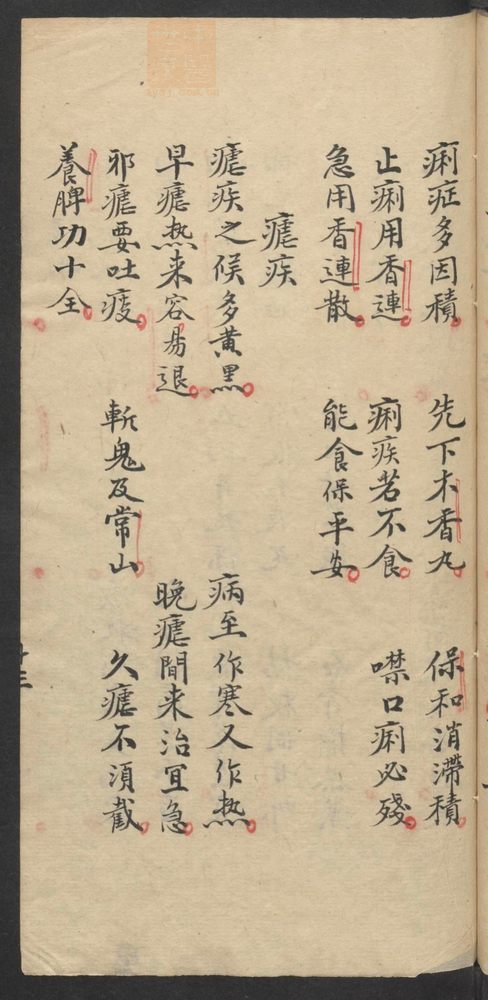 痢症多因積 先下木香丸 保和消滯積
止痢用香連 痢疾若不食 噤口痢必殘
急用香連散 能食保平安
瘧疾
瘧疾之候多黃黑 病至作寒又作热
早瘧热来容易退 晚瘧間来治宜急
邪瘧要吐疲 斬鬼及常山 久瘧不須截
養脾功十全
十三